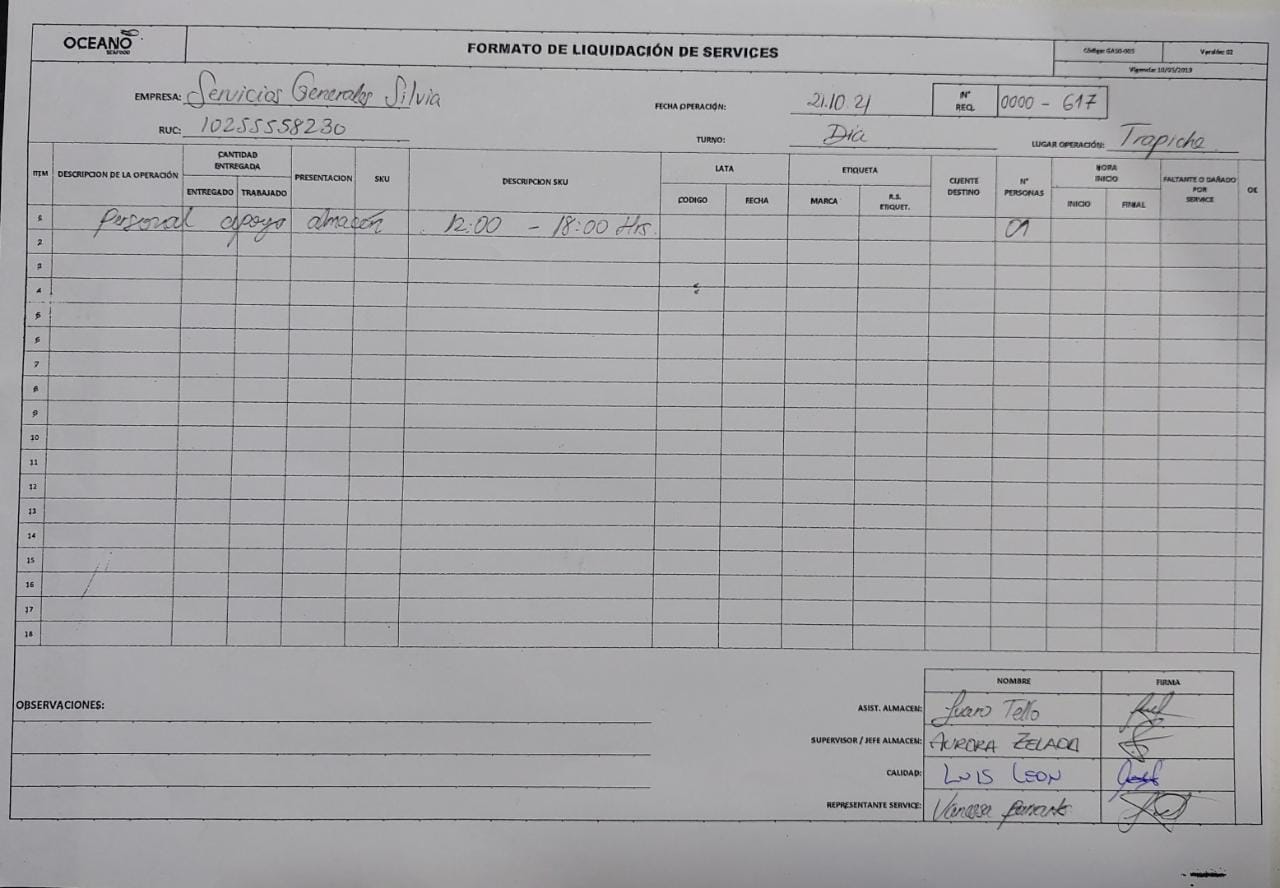 OCEANO
SEAFOOD
FORMATO DE LIQUIDACIÓN DE SERVICES
Código: GASG-005
Versión: 02
Vigencia: 10/05/2019
EMPRESA: Servicios Generales Silvia
FECHA OPERACIÓN: 21.10.21
N° REQ. 0000 - 617
RUC: 10255558230
TURNO: Dia
LUGAR OPERACIÓN: Trapiche
ITEM
DESCRIPCION DE LA OPERACIÓN
CANTIDAD ENTREGADA
ENTREGADO
TRABAJADO
PRESENTACION
SKU
DESCRIPCION SKU
LATA
CODIGO
FECHA
ETIQUETA
MARCA
R.S. ETIQUET.
CLIENTE DESTINO
N° PERSONAS
HORA INICIO
INICIO
FINIAL
FALTANTE O DAÑADO POR SERVICE
OK
1 Personal apoyo almacén 12:00 - 18:00 Hrs. 01
2
3
4
5
6
7
8
9
10
11
12
13
14
15
16
17
18
OBSERVACIONES:
NOMBRE
FIRMA
ASIST. ALMACEN: Tello
SUPERVISOR / JEFE ALMACEN: AURORA ZELADA
CALIDAD: LUIS LEON
REPRESENTANTE SERVICE: Vanessa